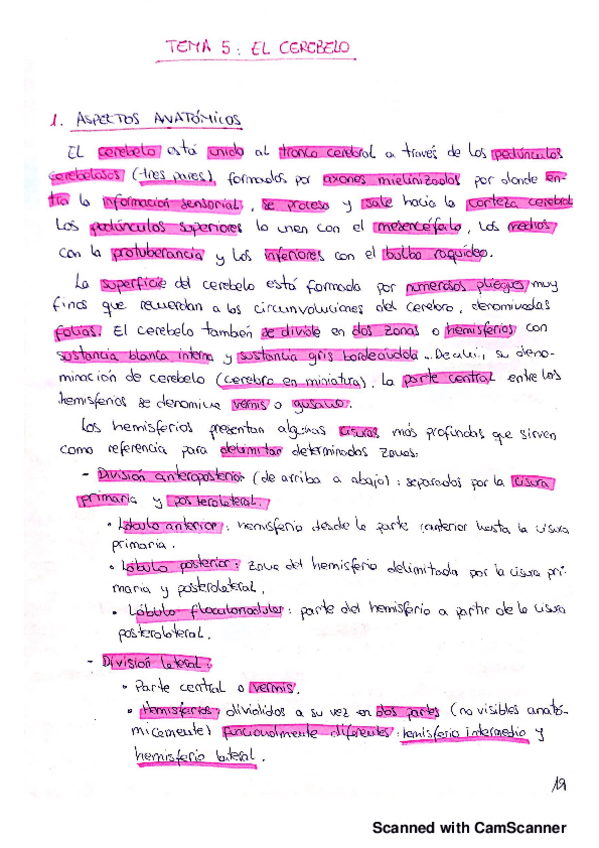 TEMA 5: EL CEREBELO
1. ASPECTOS ANATÓMICOS
EL cerebelo está unido al tronco cerebral a través de los pedúnculos
cerebelosos (tres pares), formados por axones mielinizados por donde en-
tra la información sensorial, se procesa y sale hacia la corteza cerebral.
Los pedúnculos superiores lo unen con el mesencéfalo, los medios
con la protuberancia y los inferiores con el bulbo raquídeo.
La superficie del cerebelo está formada por numerosos pliegues muy
finos que recuerdan a las circunvoluciones del cerebro, denominadas
folias. El cerebelo también se divide en dos zonas o hemisferios con
sustancia blanca interna y sustancia gris bordeándola. De ahí, su deno-
minación de cerebelo (cerebro en miniatura). La parte central entre los
hemisferios se denomina vermis o gusano.
Los hemisferios presentan algunas cisuras más profundas que sirven
como referencia para delimitar determinadas zonas:
- División anteroposterior (de arriba a abajo): separados por la cisura
primaria y posterolateral.
• Lóbulo anterior: hemisferio desde la parte anterior hasta la cisura
primaria.
• Lóbulo posterior: zona del hemisferio delimitada por la cisura pri-
maria y posterolateral.
• Lóbulo floculonodular: parte del hemisferio a partir de la cisura
posterolateral.
- División lateral:
• Parte central o vermis.
• Hemisferios: divididos a su vez en dos partes (no visibles anató-
micamente) funcionalmente diferentes: hemisferio intermedio y
hemisferio lateral.
19
Scanned with CamScanner